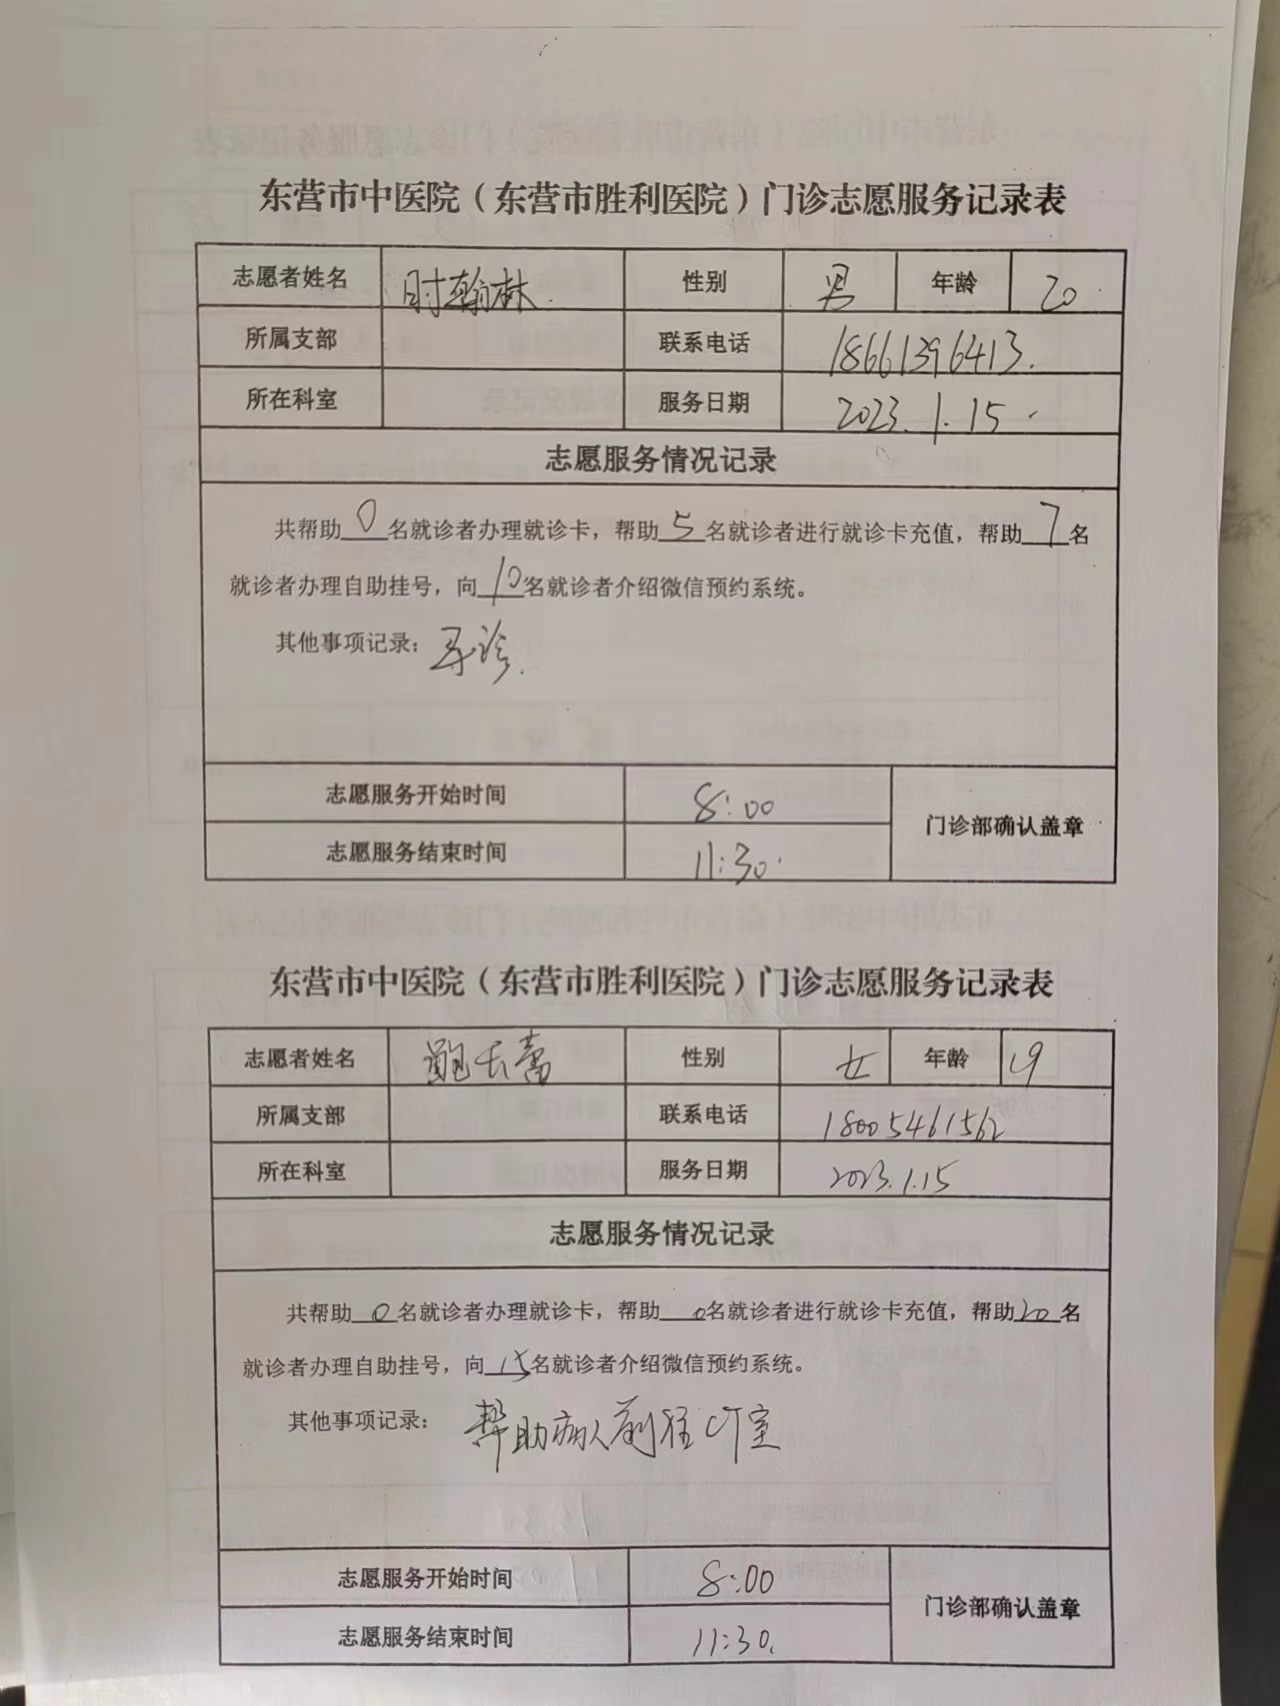 东营市中医院（东营市胜利医院）门诊志愿服务记录表
志愿者姓名 时翰林 性别 男 年龄 20
所属支部 联系电话 18661396413.
所在科室 服务日期 2023.1.15
志愿服务情况记录
共帮助0名就诊者办理就诊卡，帮助5名就诊者进行就诊卡充值，帮助7名
就诊者办理自助挂号，向10名就诊者介绍微信预约系统。
其他事项记录：导诊.
志愿服务开始时间 8:00
门诊部确认盖章
志愿服务结束时间 11:30.
东营市中医院（东营市胜利医院）门诊志愿服务记录表
志愿者姓名 鲍长蕾 性别 女 年龄 19
所属支部 联系电话 18005461562
所在科室 服务日期 2023.1.15
志愿服务情况记录
共帮助0名就诊者办理就诊卡，帮助0名就诊者进行就诊卡充值，帮助20名
就诊者办理自助挂号，向15名就诊者介绍微信预约系统。
其他事项记录： 帮助病人前往CT室
志愿服务开始时间 8:00
门诊部确认盖章
志愿服务结束时间 11:30.